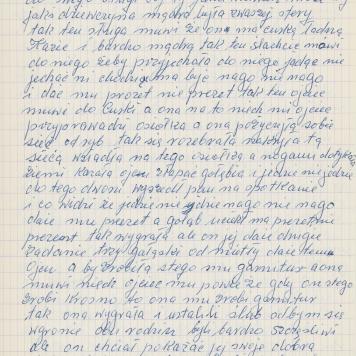 jaka dziewczyna mądra była znaszej sfery
tak ten sługa muwi że on ma curkę ładną
Kazie i bardzo mądrą tak ten słachcic mówi
do niego żeby przyjechała do niego jadąc nie
jechać ni chodu ma być nago nie nago
i dać mu prezet nie prezet tak ten ojciec
muwi do Curki a ona na to niech mi ojciec
przyprowadzi osiołka a ona pożyczyła sobie
sieć od ryb tak się rozebrała nałożyła tą
siecą wsiadła na tego osiołka a nogami dotyka
ziemi kazała ojcu złapać gołębia i jedzie nie jedzie
do tego dworu wyszedł pan na spotkanie
i co widzi że jedzie nie jedzie nago nie nago
daje mu prezet a gołąb uciekł ma prezet nie
prezent tak wygrała ale on jej daje drugie
zadanie trzy gałązki od miotły daje temu
Ojcu a by zrobiła stego mu garnitur a ona
muwi niech ojciec mu powie że gdy on stego
zrobi krosno to ona mu zrobi garnitur
tak ona wygrała i ustalili ślub odbym się
wgronie od rodzin byli bardzo szczęśliwi
ale on chciał pokazać jej swoje dobra